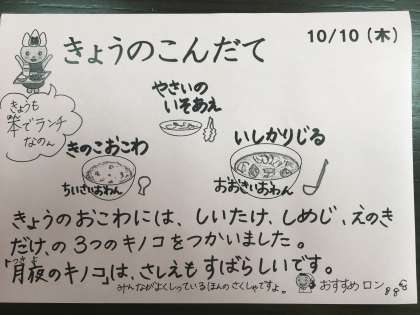 きょうのこんだて
10/10（木）
きょうも
笑でランチ
なのん
やさいの
いそあえ
きのこおこわ
ちいさいおわん
いしかりじる
おおきいおわん
きょうのおこわには、しいたけ、しめじ、えのき
だけ、の3つのキノコをつかいました。
「月夜のキノコ」は、さしえもすばらしいです。
みんながよくしっているほんのさくしゃですよ。
おすすめロン